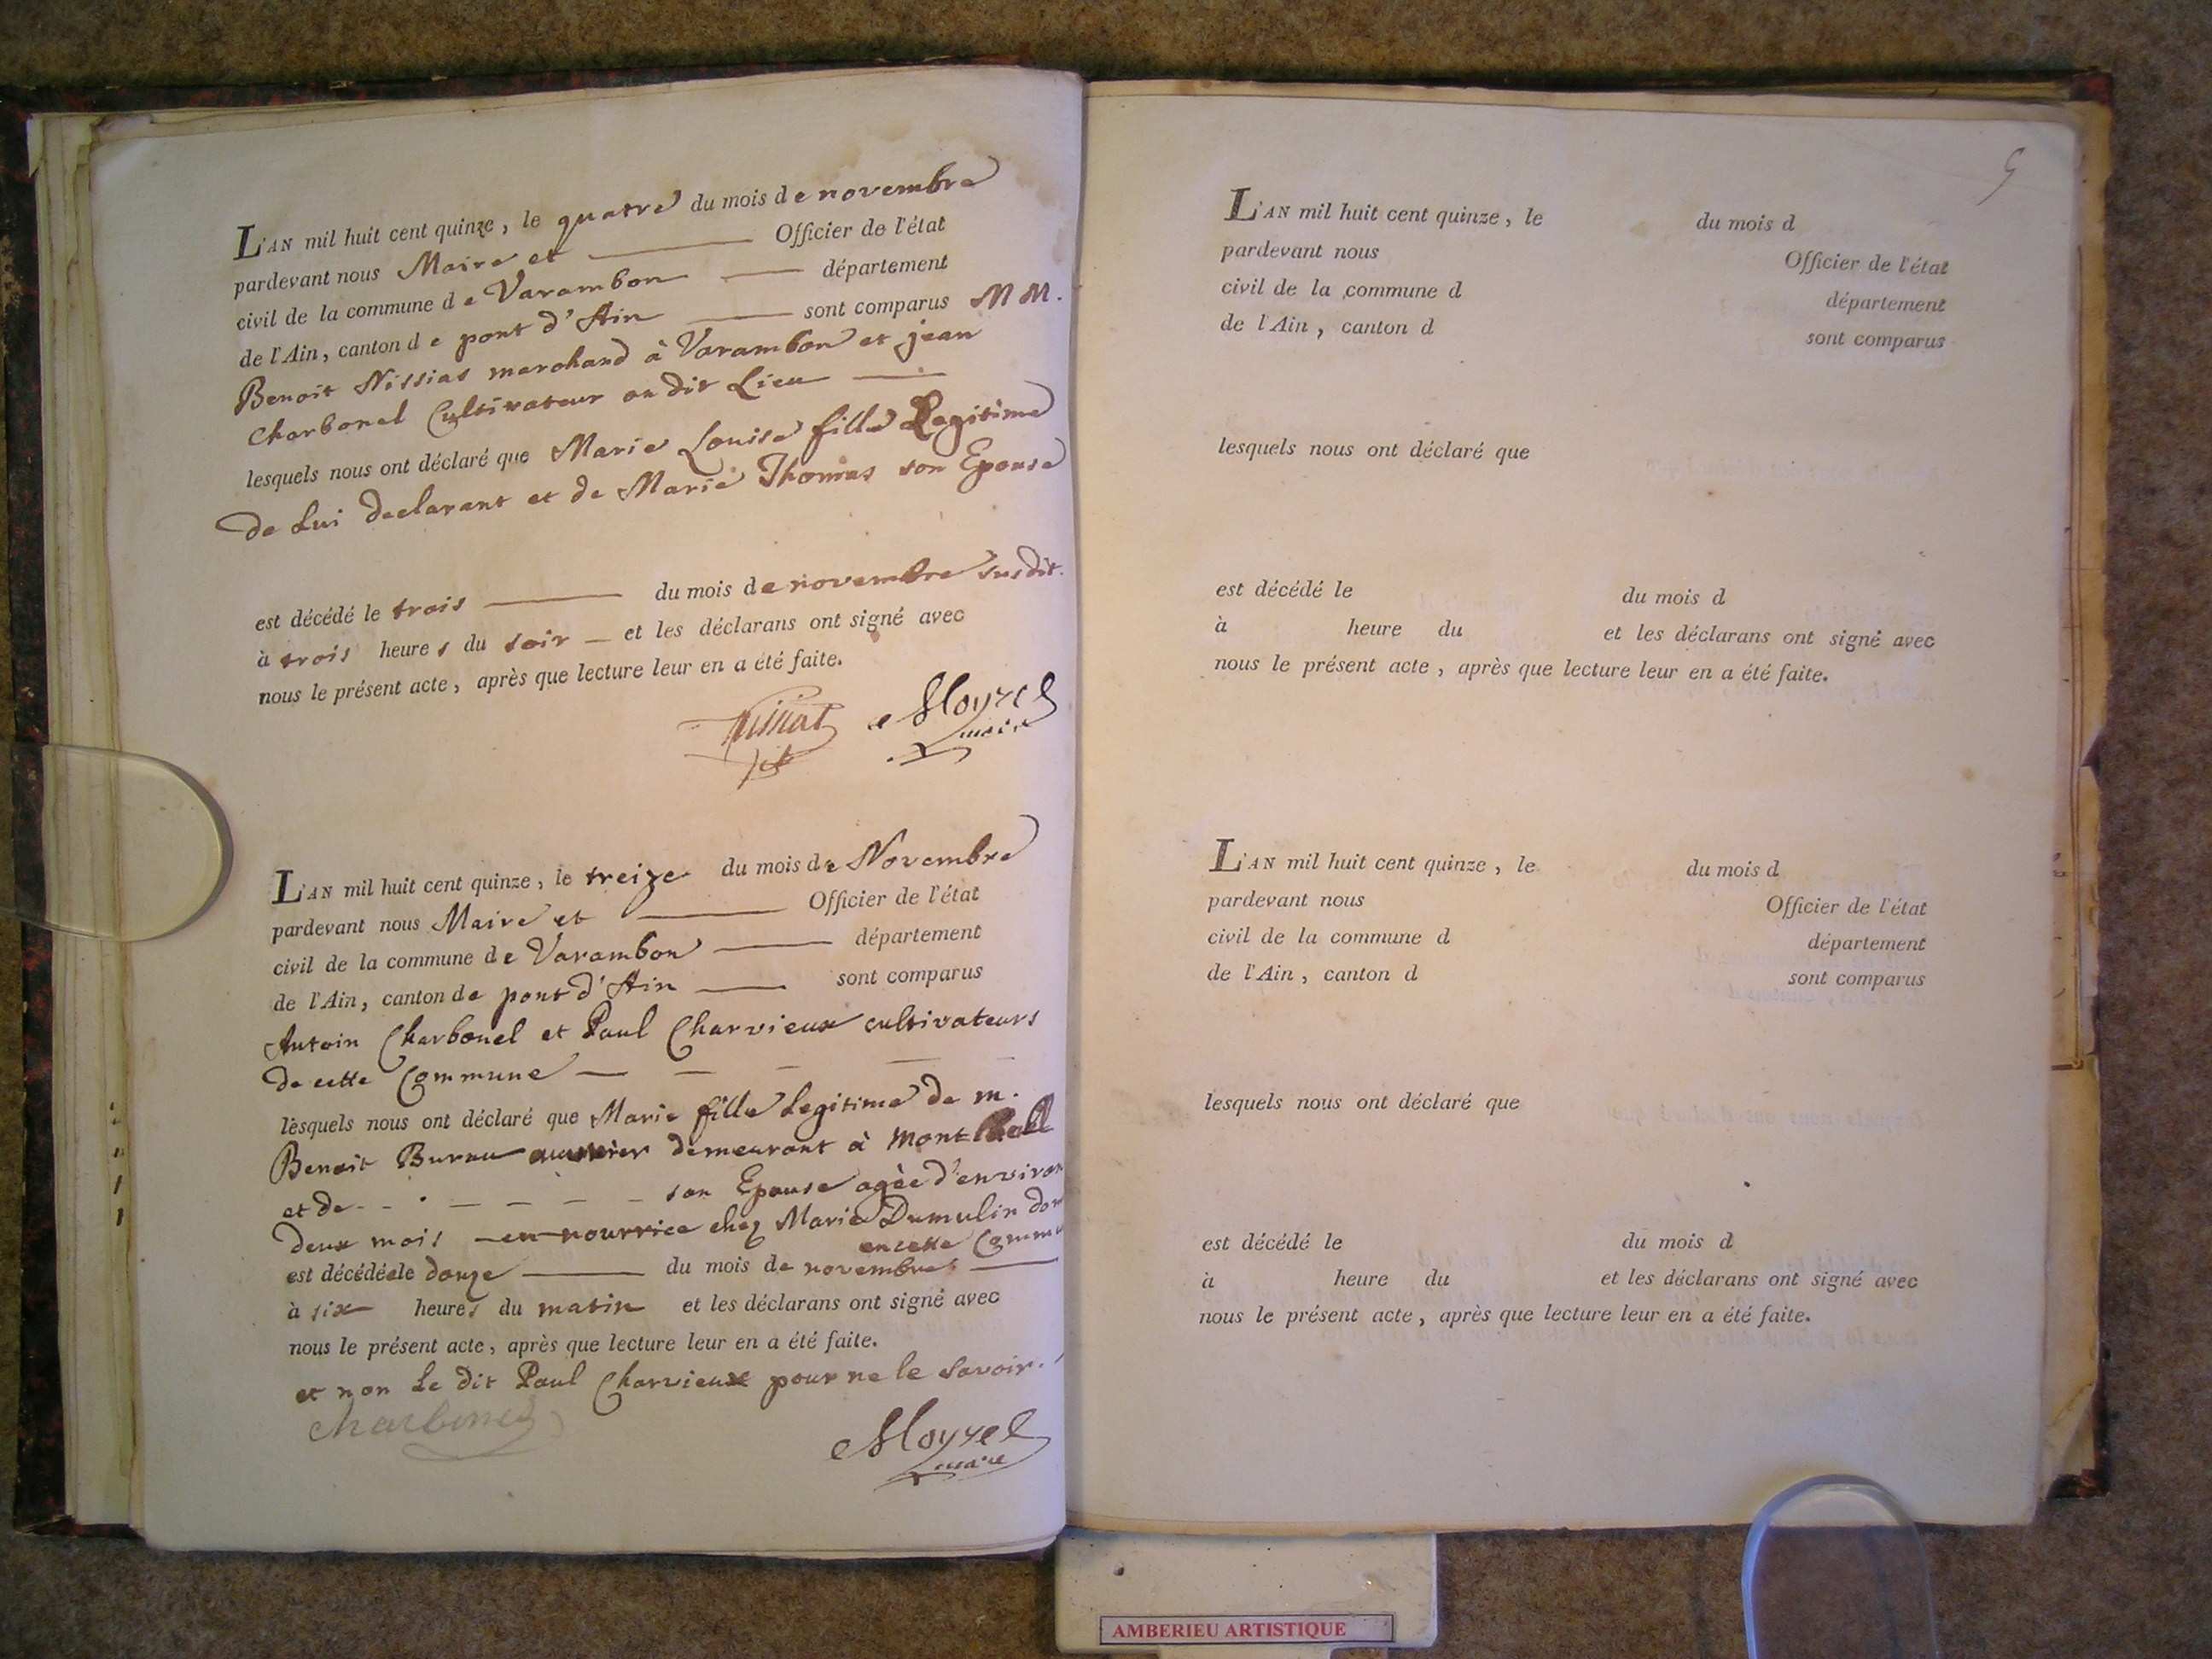 L'AN mil huit cent quinze, le quatre du mois de novembre
pardevant nous Maire et Officier de l'état
civil de la commune de Varambon département
de l'Ain, canton de pont d'Ain sont comparus MM.
Benoit Nissias marchand à Varambon et jean
Charbonel Cultivateur au dit Lieu
lesquels nous ont déclaré que Marie Louise fille Legitime
de Lui declarant et de Marie Thomas son Epouse
est décédé le trois du mois de novembre susdit.
à trois heures du soir et les déclarans ont signé avec
nous le présent acte, après que lecture leur en a été faite.
Moyzel
maire
L'AN mil huit cent quinze, le treize du mois de Novembre
pardevant nous Maire et Officier de l'état
civil de la commune de Varambon département
de l'Ain, canton de pont d'Ain sont comparus
Antoin Charbonel et Paul Charvieux cultivateurs
de cette Commune
lesquels nous ont déclaré que Marie fille Legitime de m.
Benoit demeurant à
et de son Epouse agèe d'environ
deux mois en nourrice chez Marie Dumulin
en cette
est décédée le douze du mois de novembre
à six heures du matin et les déclarans ont signé avec
nous le présent acte, après que lecture leur en a été faite.
et non Le dit Paul Charvieux pour ne le savoir.
Charbonel
Moyzel
maire
L'AN mil huit cent quinze, le du mois d
pardevant nous Officier de l'état
civil de la commune d département
de l'Ain, canton d sont comparus
lesquels nous ont déclaré que
est décédé le du mois d
à heure du et les déclarans ont signé avec
nous le présent acte, après que lecture leur en a été faite.
L'AN mil huit cent quinze, le du mois d
pardevant nous Officier de l'état
civil de la commune d département
de l'Ain, canton d sont comparus
lesquels nous ont déclaré que
est décédé le du mois d
à heure du et les déclarans ont signé avec
nous le présent acte, après que lecture leur en a été faite.
AMBERIEU ARTISTIQUE